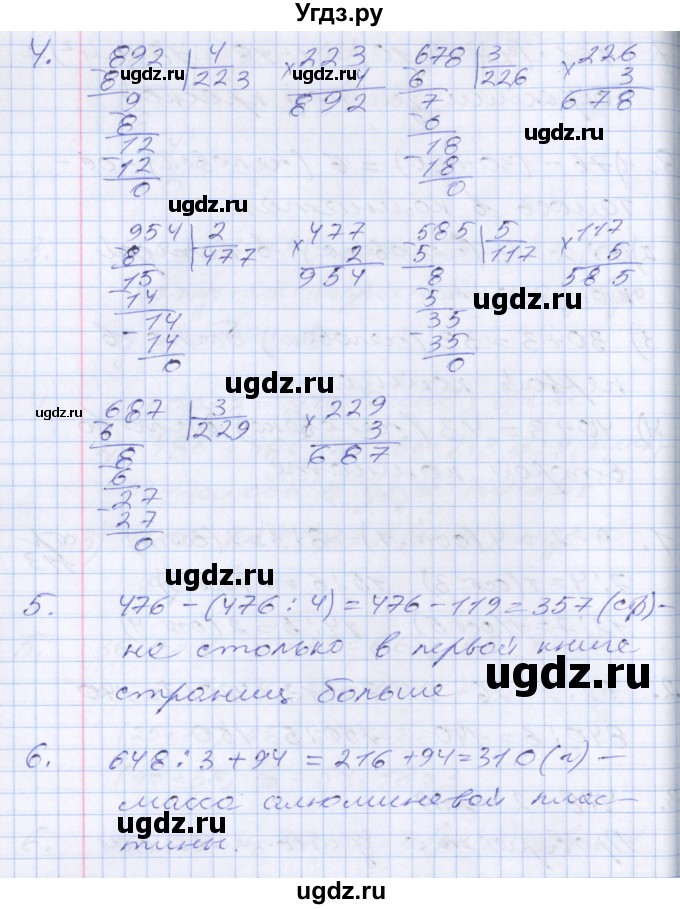 Угдз.ру
4.
892 | 4
8 223
9
8
12
12
0
× 223
4
892
678 | 3
6 226
7
6
18
18
0
× 226
3
678
ugdz.ru
ugdz.ru
ugdz.ru
954 | 2
8 477
15
14
14
14
0
× 477
2
954
585 | 5
5 117
8
5
35
35
0
× 117
5
585
ugdz.ru
ugdz.ru
ugdz.ru
ugdz.ru
687 | 3
6 229
8
6
27
27
0
× 229
3
687
ugdz.ru
ugdz.ru
5. 476 - (476 : 4) = 476 - 119 = 357 (ср) -
на столько в первой книге
страниц больше
ugdz.ru
ugdz.ru
6. 648 : 3 + 94 = 216 + 94 = 310 (г) -
масса алюминевой плас-
тины.
ugdz.ru
ugdz.ru
ugdz.ru
ugdz.ru